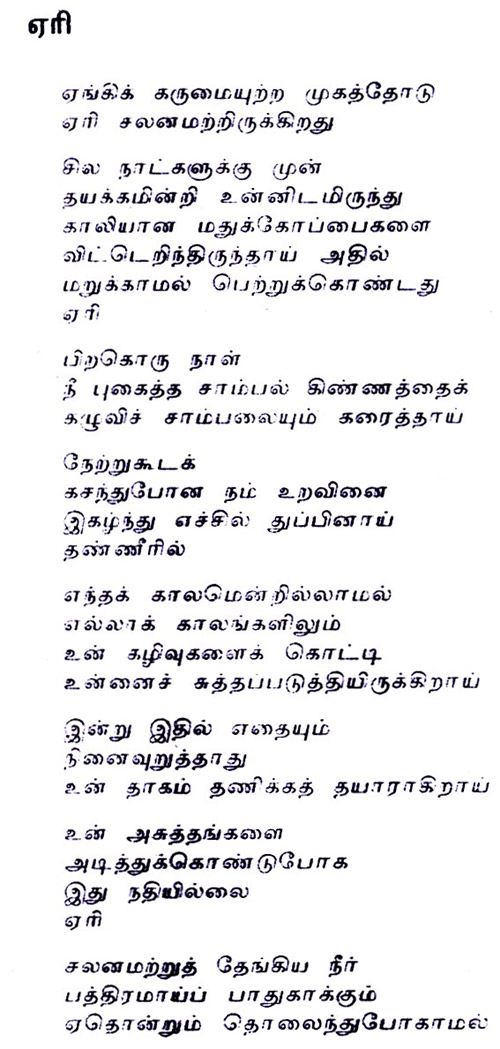 ஏரி
ஏங்கிக் கருமையுற்ற முகத்தோடு
ஏரி சலனமற்றிருக்கிறது
சில நாட்களுக்கு முன்
தயக்கமின்றி உன்னிடமிருந்து
காலியான மதுக்கோப்பைகளை
விட்டெறிந்திருந்தாய் அதில்
மறுக்காமல் பெற்றுக்கொண்டது
ஏரி
பிறகொரு நாள்
நீ புகைத்த சாம்பல் கிண்ணத்தைக்
கழுவிச் சாம்பலையும் கரைத்தாய்
நேற்றுகூடக்
கசந்துபோன நம் உறவினை
இகழ்ந்து எச்சில் துப்பினாய்
தண்ணீரில்
எந்தக் காலமென்றில்லாமல்
எல்லாக் காலங்களிலும்
உன் கழிவுகளைக் கொட்டி
உன்னைச் சுத்தப்படுத்தியிருக்கிறாய்
இன்று இதில் எதையும்
நினைவுறுத்தாது
உன் தாகம் தணிக்கத் தயாராகிறாய்
உன் அசுத்தங்களை
அடித்துக்கொண்டுபோக
இது நதியில்லை
ஏரி
சலனமற்றுத் தேங்கிய நீர்
பத்திரமாய்ப் பாதுகாக்கும்
ஏதொன்றும் தொலைந்துபோகாமல்